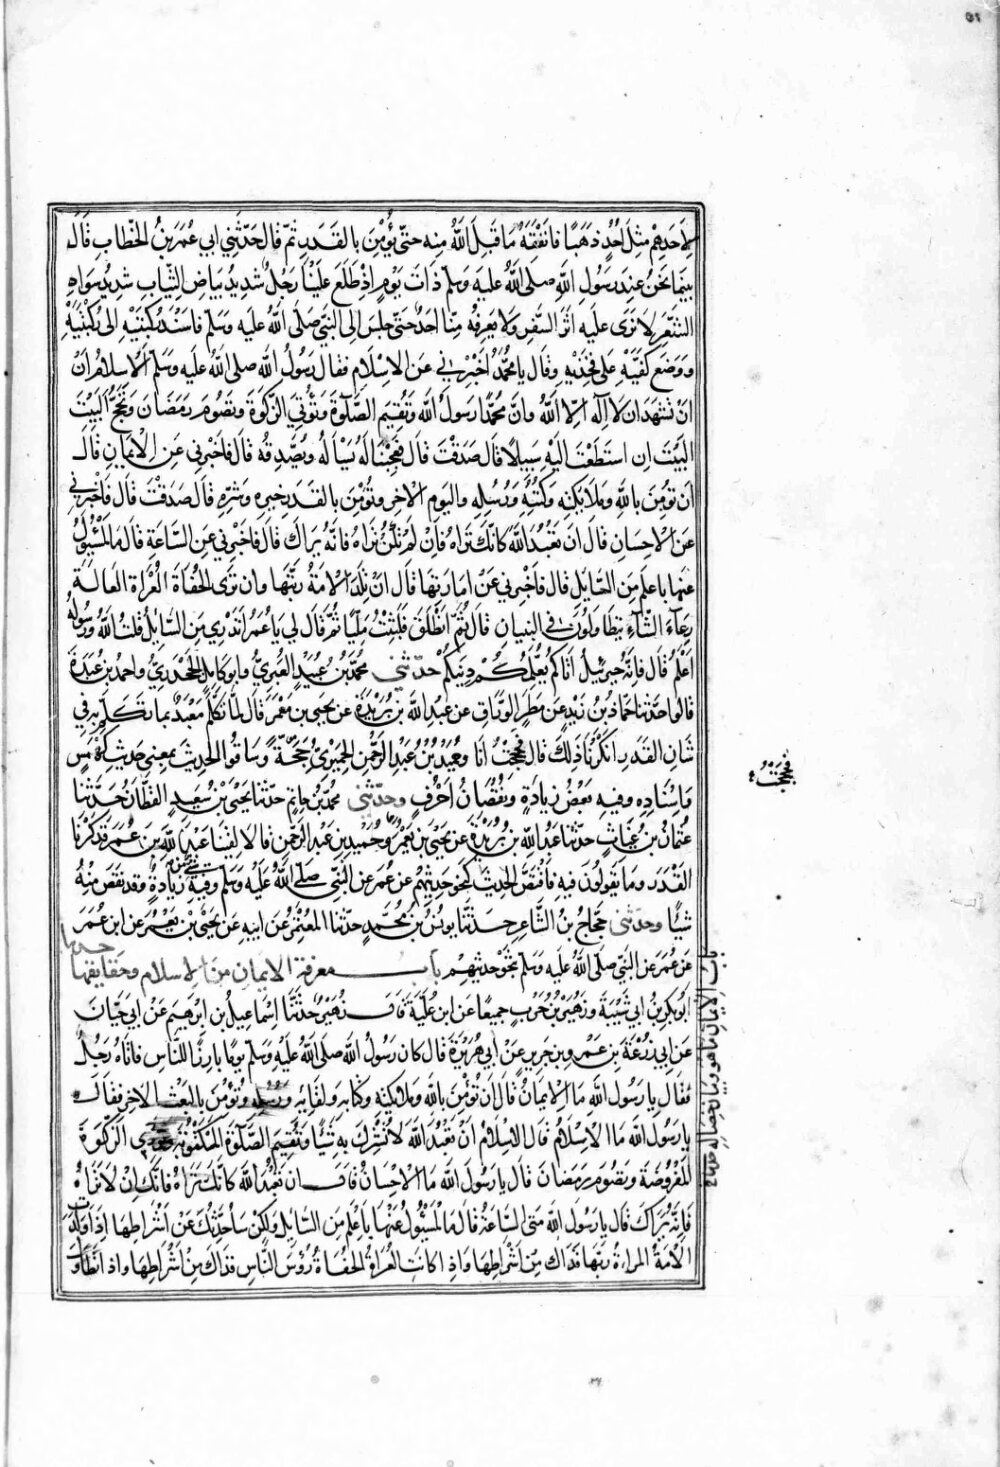 لاحدهم مثل احد ذهبا فانفقه ما قبل الله منه حتى يؤمن بالقدر ثم قال حدثني ابي عمر بن الخطاب قال
بينما نحن عند رسول الله صلى الله عليه وسلم ذات يوم اذ طلع علينا رجل شديد بياض الثياب شديد سواد
الشعر لا نرى عليه اثر السفر ولا يعرفه منا احد حتى جلس الى النبي صلى الله عليه وسلم فاسند ركبتيه الى ركبتيه
ووضع كفيه على فخذيه وقال يا محمد اخبرني عن الاسلام فقال رسول الله صلى الله عليه وسلم الاسلام ان
ان تشهد ان لا اله الا الله وان محمدا رسول الله وتقيم الصلوة وتؤتي الزكوة وتصوم رمضان وتحج البيت
البيت ان استطعت اليه سبيلا قال صدقت قال فعجبنا له يسأله ويصدقه قال فاخبرني عن الايمان قال
ان تؤمن بالله وملائكته وكتبه ورسله واليوم الاخر وتؤمن بالقدر خيره وشره قال صدقت قال فاخبرني
عن الاحسان قال ان تعبد الله كانك تراه فان لم تكن تراه فانه يراك قال فاخبرني عن الساعة قال ما المسئول
عنها باعلم من السايل قال فاخبرني عن امارتها قال ان تلد الامة ربتها وان ترى الحفاة العراة العالة
رعاء الشاء يتطاولون في البنيان قال ثم انطلق فلبثت مليا ثم قال لي يا عمر اتدري من السايل قلت الله ورسوله
اعلم قال فانه جبرئيل اتاكم يعلمكم دينكم حدثني محمد بن عبيد الغبري وابو كامل الجحدري واحمد بن عبدة
قالوا حدثنا حماد بن زيد عن مطر الوراق عن عبد الله بن بريدة عن يحيى بن معمر قال لما تكلم معبد بما تكلم به في
شان القدر انكرنا ذلك قال فحججت انا وحميد بن عبد الرحمن الحميري حجة وساقوا الحديث بمعنى حديث كهمس
واسناده وفيه بعض زيادة ونقصان احرف وحدثني محمد بن حاتم حدثنا يحيى بن سعيد القطان حدثنا
عثمان بن غياث حدثنا عبد الله بن بريدة عن يحيى بن يعمر وحميد بن عبد الرحمن قالا لقينا عبد الله بن عمر فذكرنا
القدر وما يقولون فيه فاقتص الحديث كنحو حديثهم عن عمر عن النبي صلى الله عليه وسلم وفيه شئ من زيادة وقد نقص منه
شيئا وحدثني حجاج بن الشاعر حدثنا يونس بن محمد حدثنا المعتمر عن ابيه عن يحيى بن يعمر عن ابن عمر
عن عمر عن النبي صلى الله عليه وسلم بنحو حديثهم باب معرفة الايمان من الاسلام وحقايقهما حدثنا
ابو بكر بن ابي شيبة وزهير بن حرب جميعا عن ابن علية قال زهير حدثنا اسماعيل بن ابرهيم عن ابي حيان
عن ابي زرعة بن عمرو بن جرير عن ابي هريرة قال كان رسول الله صلى الله عليه وسلم يوما بارزا للناس فاتاه رجل
فقال يا رسول الله ما الايمان قال ان تؤمن بالله وملائكته وكتابه ولقايه ورسله وتؤمن بالبعث الاخر فقال
يا رسول الله ما الاسلام قال الاسلام ان تعبد الله لا تشرك به شيئا وتقيم الصلوة المكتوبة وتؤدي الزكوة
المفروضة وتصوم رمضان قال يا رسول الله ما الاحسان قال ان تعبد الله كانك تراه فانك ان لا تراه
فانه يراك قال يا رسول الله متى الساعة قال ما المسئول عنها باعلم من السايل ولكن ساحدثك عن اشراطها اذا ولدت
الامة المراءة ربها فذاك من اشراطها واذا كانت العراة الحفاة رؤس الناس فذاك من اشراطها واذا تطاول
فحججت
باب الايمان ما هو وبيان خصاله